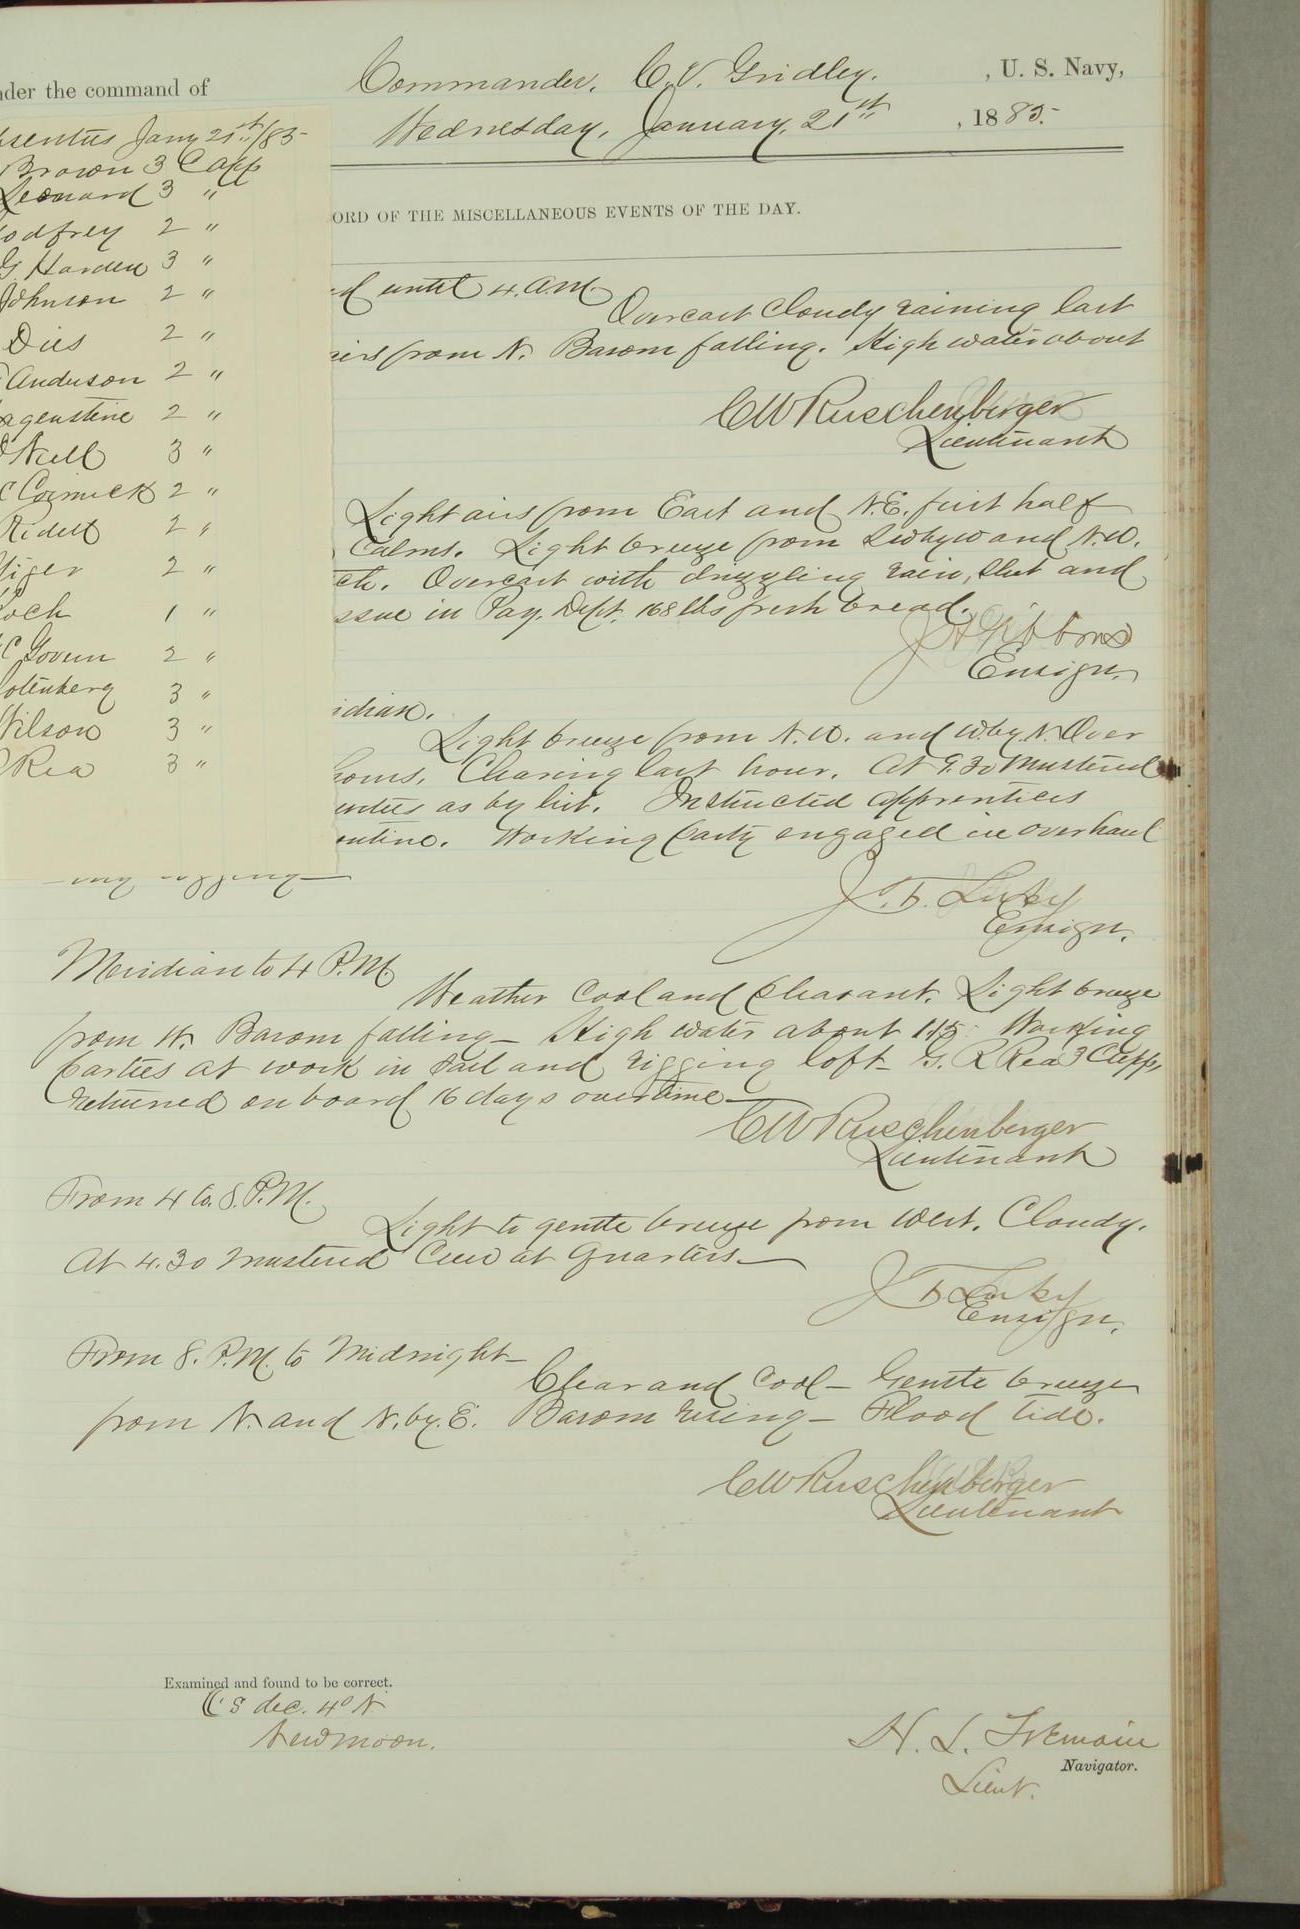 nder the command of Commander, C. V. Gridley. , U. S. Navy,
Wednesday, January, 21st , 1885.
sentees Jany 21st/85
Brown 3 Capp
Leonard 3 "
odfrey 2 "
G Harden 3 "
Johnson 2 "
Dies 2 "
Anderson 2 "
genstine 2 "
Neill 3 "
C Cormick 2 "
Ridell 2 "
iger 2 "
och 1 "
C Govern 2 "
otenberg 3 "
Wilson 3 "
Rea 3 "
ORD OF THE MISCELLANEOUS EVENTS OF THE DAY.
d until 4. A.M.
Overcast Cloudy raining last
airs from N. Barom falling. High water about
C W Ruschenberger
Lieutenant
Light airs from East and N.E. first half
Calms. Light breeze from and N.W.
ch. Overcast with drizzling rain, sleet and
ssue in Pay. Dept. 168 lbs fresh bread.
J H Gibbons
Ensign.
idian.
Light breeze from N.W. and W. by N. Over
hours. Clearing last hour. At 9.30 Mustered
entees as by list. Instructed apprentices
outine. Working party engaged in overhaul
ing rigging
J. F. Luby
Ensign.
Meridian to 4 P.M.
Weather Cool and pleasant. Light breeze
from W. Barom falling_ High water about 1.15. Working
parties at work in sail and rigging loft_ G. R Rea 3 Capp,
returned on board 16 days overtime_
C W Ruschenberger
Lieutenant
From 4 to 8. P.M.
Light to gentle breeze from West. Cloudy.
At 4.30 mustered Crew at Quarters_
J F Luby
Ensign.
From 8. P.M. to Midnight_
Clear and Cool_ Gentle breeze
from N. and N. by. E. Barom rising_ Flood tide.
C W Ruschenberger
Lieutenant
Examined and found to be correct.
dec. 4° N
New moon.
H. L. Tremain
Navigator.
Lieut.